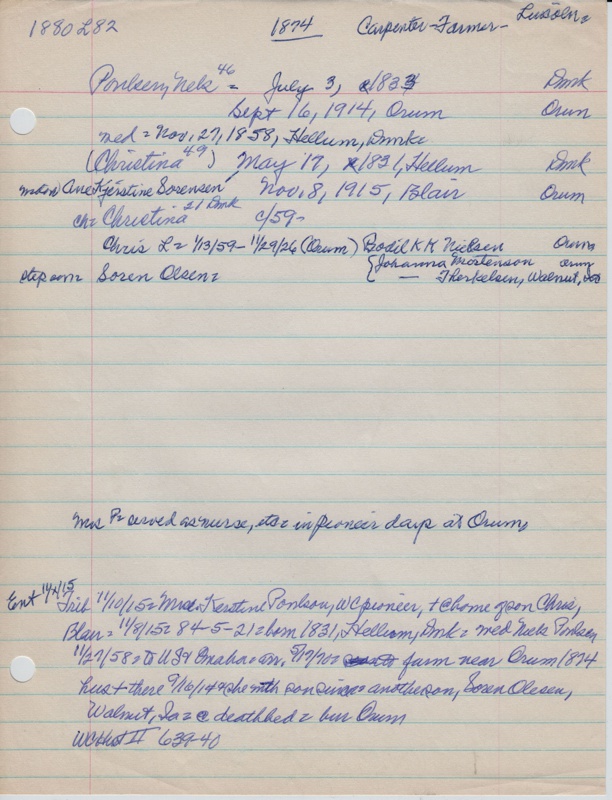 1880 L82 1874 Carpenter-Farmer-
Poulsen, Nels 46 = July 3, 1833 Dmk
Sept 16, 1914, Orum Orum
med = Nov, 27, 1858, Hellum, Dmk
(Christina 49) May 17, 1831, Hellum Dmk
Ane Kjerstine Sorensen Nov, 8, 1915, Blair Orum
ch = Christina 21 Dmk c/59-
Chris L = 1/13/59 - 11/29/26 (Orum) Bodil K K Nielsen Orum
{Johanna Mortenson Orum
step son = Soren Olsen = — Therkelsen, Walnut,
Mrs P = served as nurse, etc = in pioneer days at Orum,
Ent 11/15
Trib 11/10/15 = Mrs. Kerstine Poulson, WC pioneer, + c home of son Chris,
Blair = 11/8/15 = 84-5-21 = born 1831, Hellum, Dmk = med Neels Poulsen
11/27/58 = to US + Omaha = arr. farm near Orum 1874
hus + there 9/16/14 + she with son since = another son, Soren Olesen,
Walnut, Ia = c deathbed = bur Orum
WC Hist II 639-40